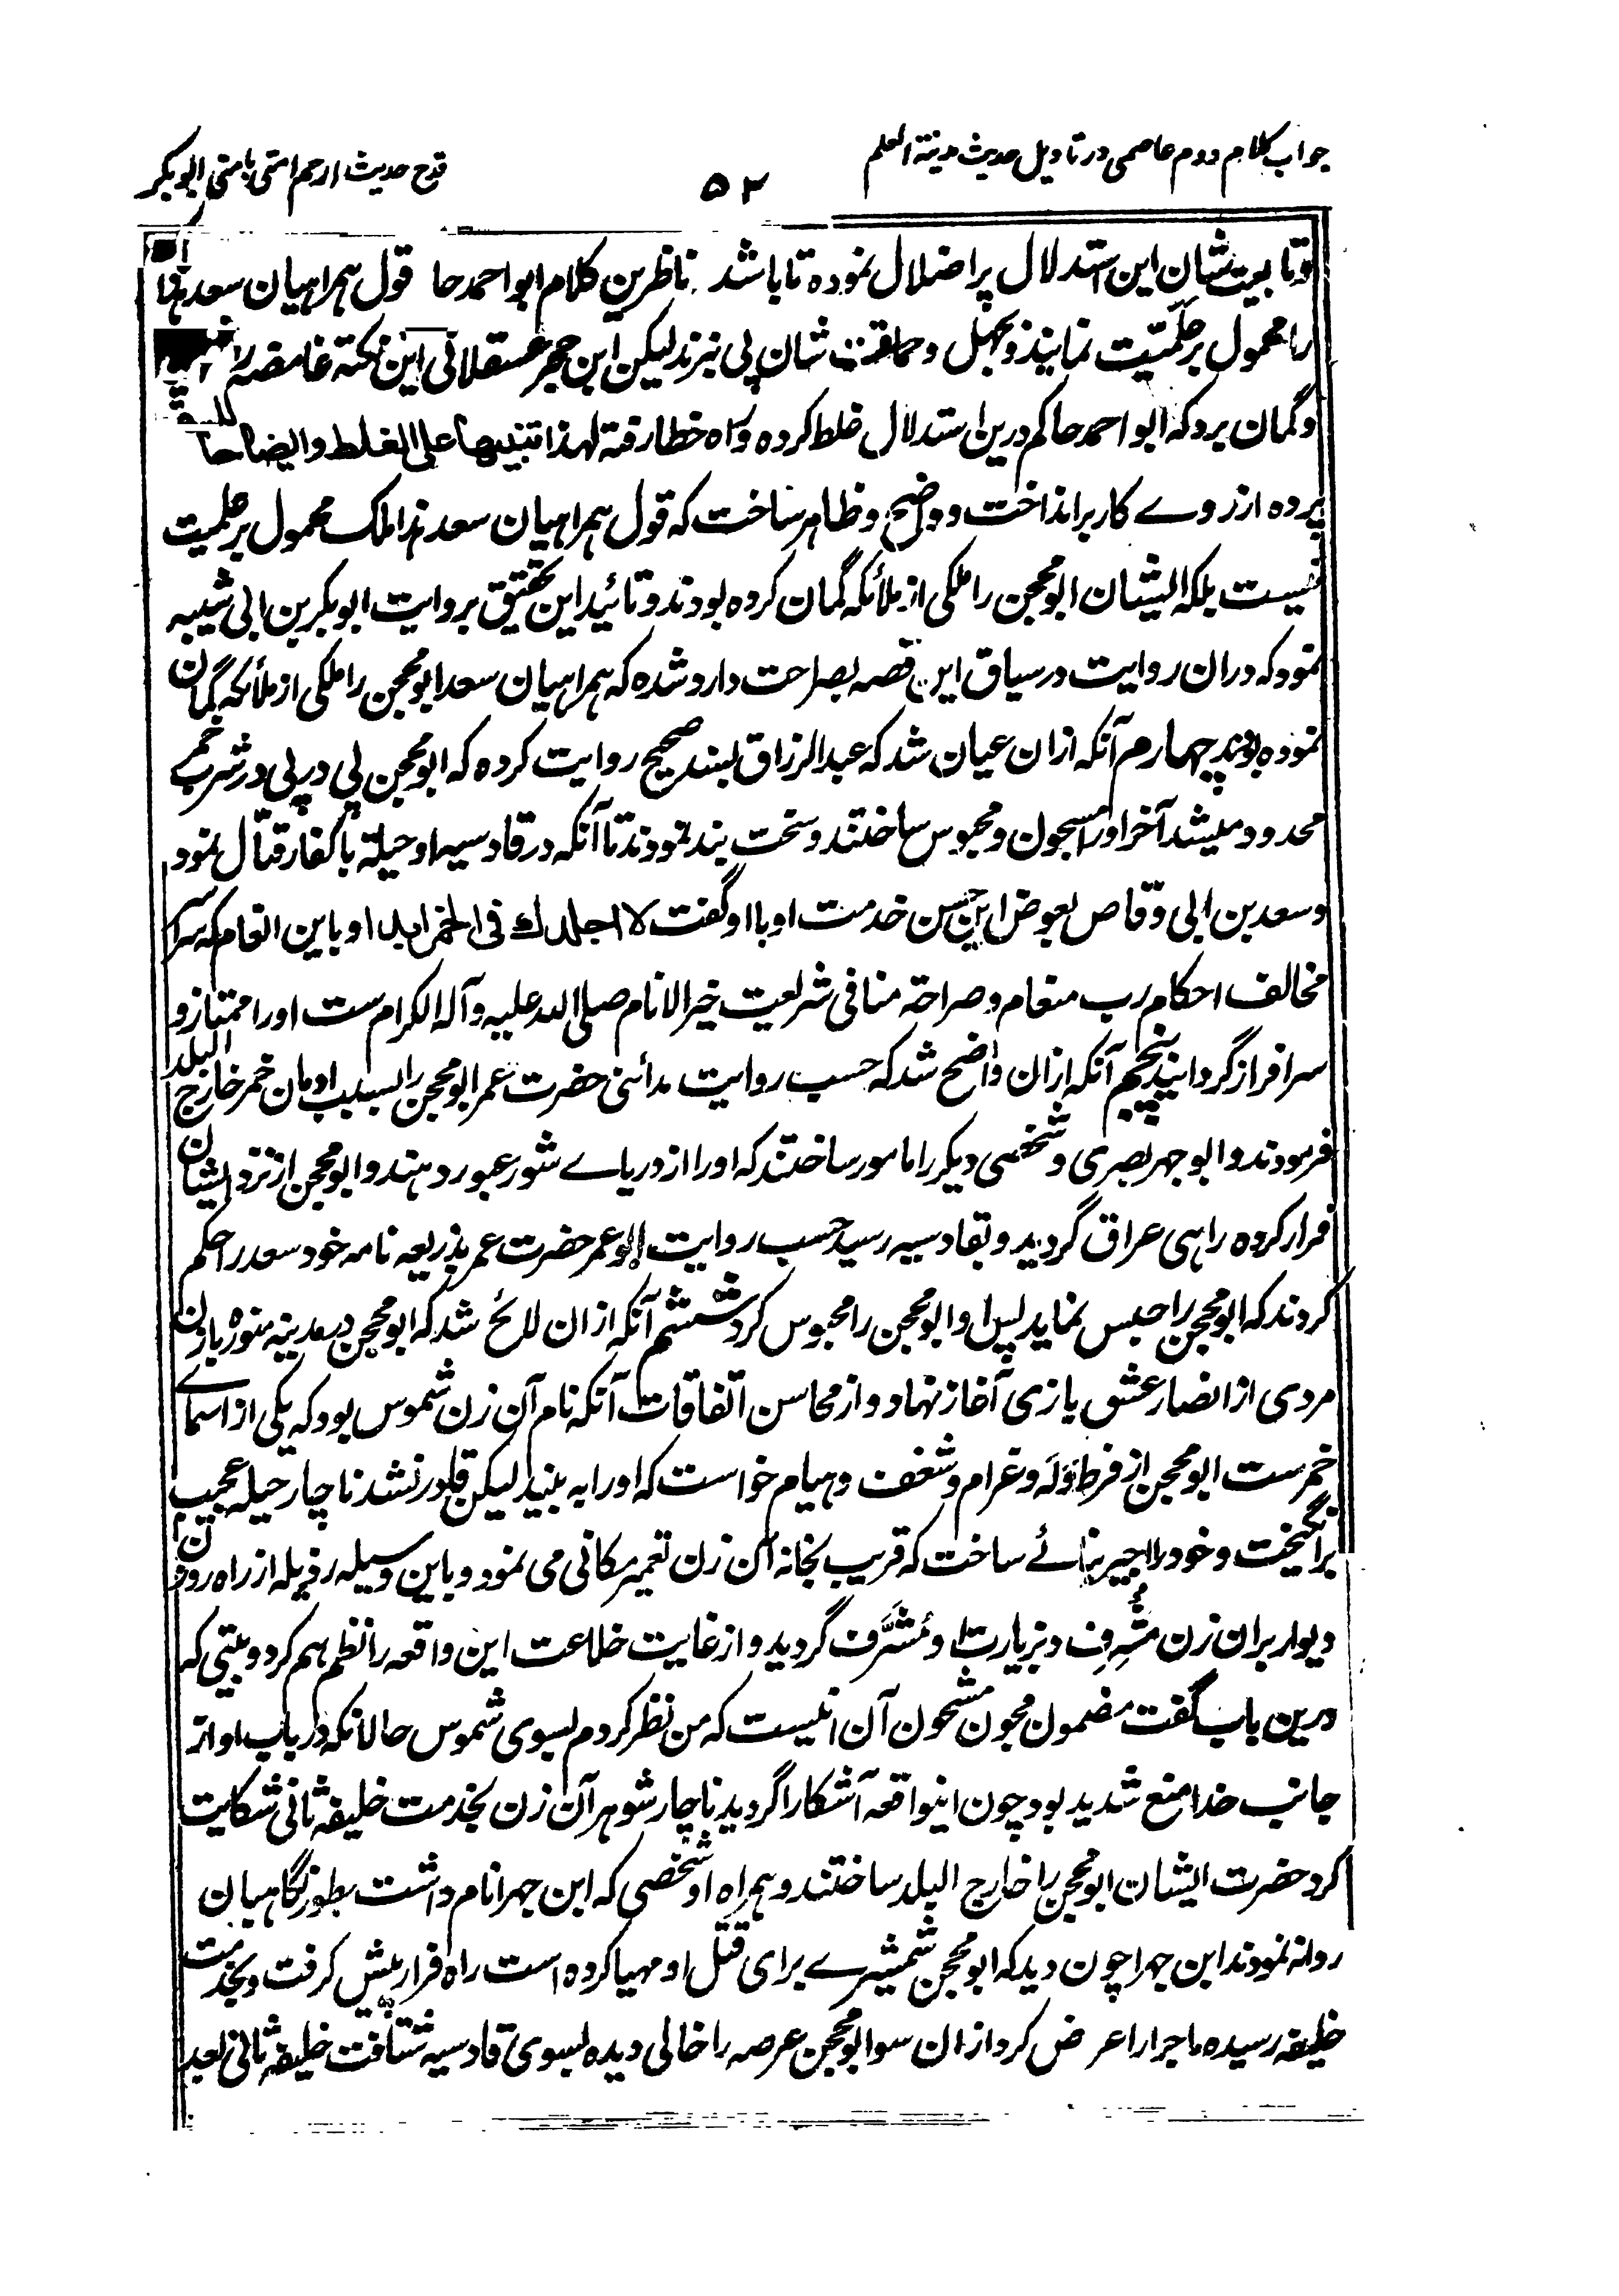 جواب کلام دوم عاصمی در تاویل حدیث مدینة العلم
۵۲
قدح حدیث ارحم امتی بامتی ابوبکر
وتابعیت شان این استدلال پر اضلال نموده تا باشد ناظرین کلام ابو احمد حا قول همراهیان سعد هذا
را محمول بر علمیت نمایند و بجهل و حماقت شان پی نبرند لیکن ابن حجر عسقلانی این نکته غامضه را
و گمان برد که ابو احمد حاکم درین استدلال غلط کرده و راه خطا رفته لهذا تنبیها علی الغلط وایضاحا
پرده از روے کار برانداخت و واضح و ظاهر ساخت که قول همراهیان سعد هذا ملک محمول بر علمیت
نیست بلکه ایشان ابو محجن را ملکی از ملائکه گمان کرده بودند و تائید این تحقیق بروایت ابوبکر بن ابی شیبه
نمود که دران روایت در سیاق این قصه بصراحت وارد شده که همراهیان سعد ابو محجن را ملکی از ملائکه گمان
نموده بودند چهارم آنکه ازان عیان شد که عبد الرزاق بسند صحیح روایت کرده که ابو محجن پی در پی در شرب خمر
محدود میشد آخر او را مسجون و محبوس ساختند و سخت بند نمودند تا آنکه در قادسیه او حیلة با کفار قتال نمود
و سعد بن ابی وقاص بعوض این حسن خدمت او با او گفت لا اجلدك فی الخمر ابدا و باین انعام که سراسر
مخالف احکام رب منعام و صراحة منافی شریعت خیر الانام صلی الله علیه و آله الکرام ست او را ممتاز و
سرافراز گردانید پنجم آنکه ازان واضح شد که حسب روایت مدائنی حضرت عمر ابو محجن را بسبب ادمان خمر خارج البلد
فرمودند و ابو جهر بصری و شخصی دیگر را مامور ساختند که او را از دریاے شور عبور دهند و ابو محجن از نزد ایشان
فرار کرده راهی عراق گردید و بقادسیه رسید حسب روایت ابو عمر حضرت عمر بذریعه نامه خود سعد را حکم
کردند که ابو محجن را حبس نماید پس او ابو محجن را محبوس کرد ششم آنکه ازان لائح شد که ابو محجن در مدینه منوره با زن
مردی از انصار عشق بازی آغاز نهاد و از محاسن اتفاقات آنکه نام آن زن شموس بود که یکی از اسماے
خمرست ابو محجن از فرط وله و غرام و شغف و هیام خواست که او را به بیند لیکن قادر نشد ناچار حیله عجیب
برانگیخت و خود را اجیر بنائے ساخت که قریب بخانه آن زن تعمیر مکانی می نمود و باین وسیله رذیله از راه روزن
دیوار بران زن مشرف و بزیارت او مشرف گردید و از غایت خلاعت این واقعه را نظم هم کرد و بیتی که
درین باب گفت مضمون مجون مشحون آن اینست که من نظر کردم بسوی شموس حالانکه در باب او از
جانب خدا منع شدید بود چون اینواقعه آشکارا گردید ناچار شوهر آن زن بخدمت خلیفه ثانی شکایت
کرد حضرت ایشان ابو محجن را خارج البلد ساختند و همراه او شخصی که ابن جهرا نام داشت بطور نگاهبان
روانه نمودند ابن جهرا چون دید که ابو محجن شمشیرے برای قتل او مهیا کرده است راه فرار پیش گرفت و بخدمت
خلیفه رسیده ماجرا را عرض کرد ازان سو ابو محجن عرصه را خالی دیده بسوی قادسیه شتافت خلیفه ثانی بعد